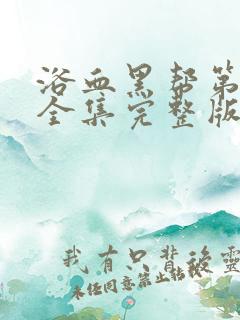 浴血黑帮第
全集完整版
我有只背後靈
未经同意禁止